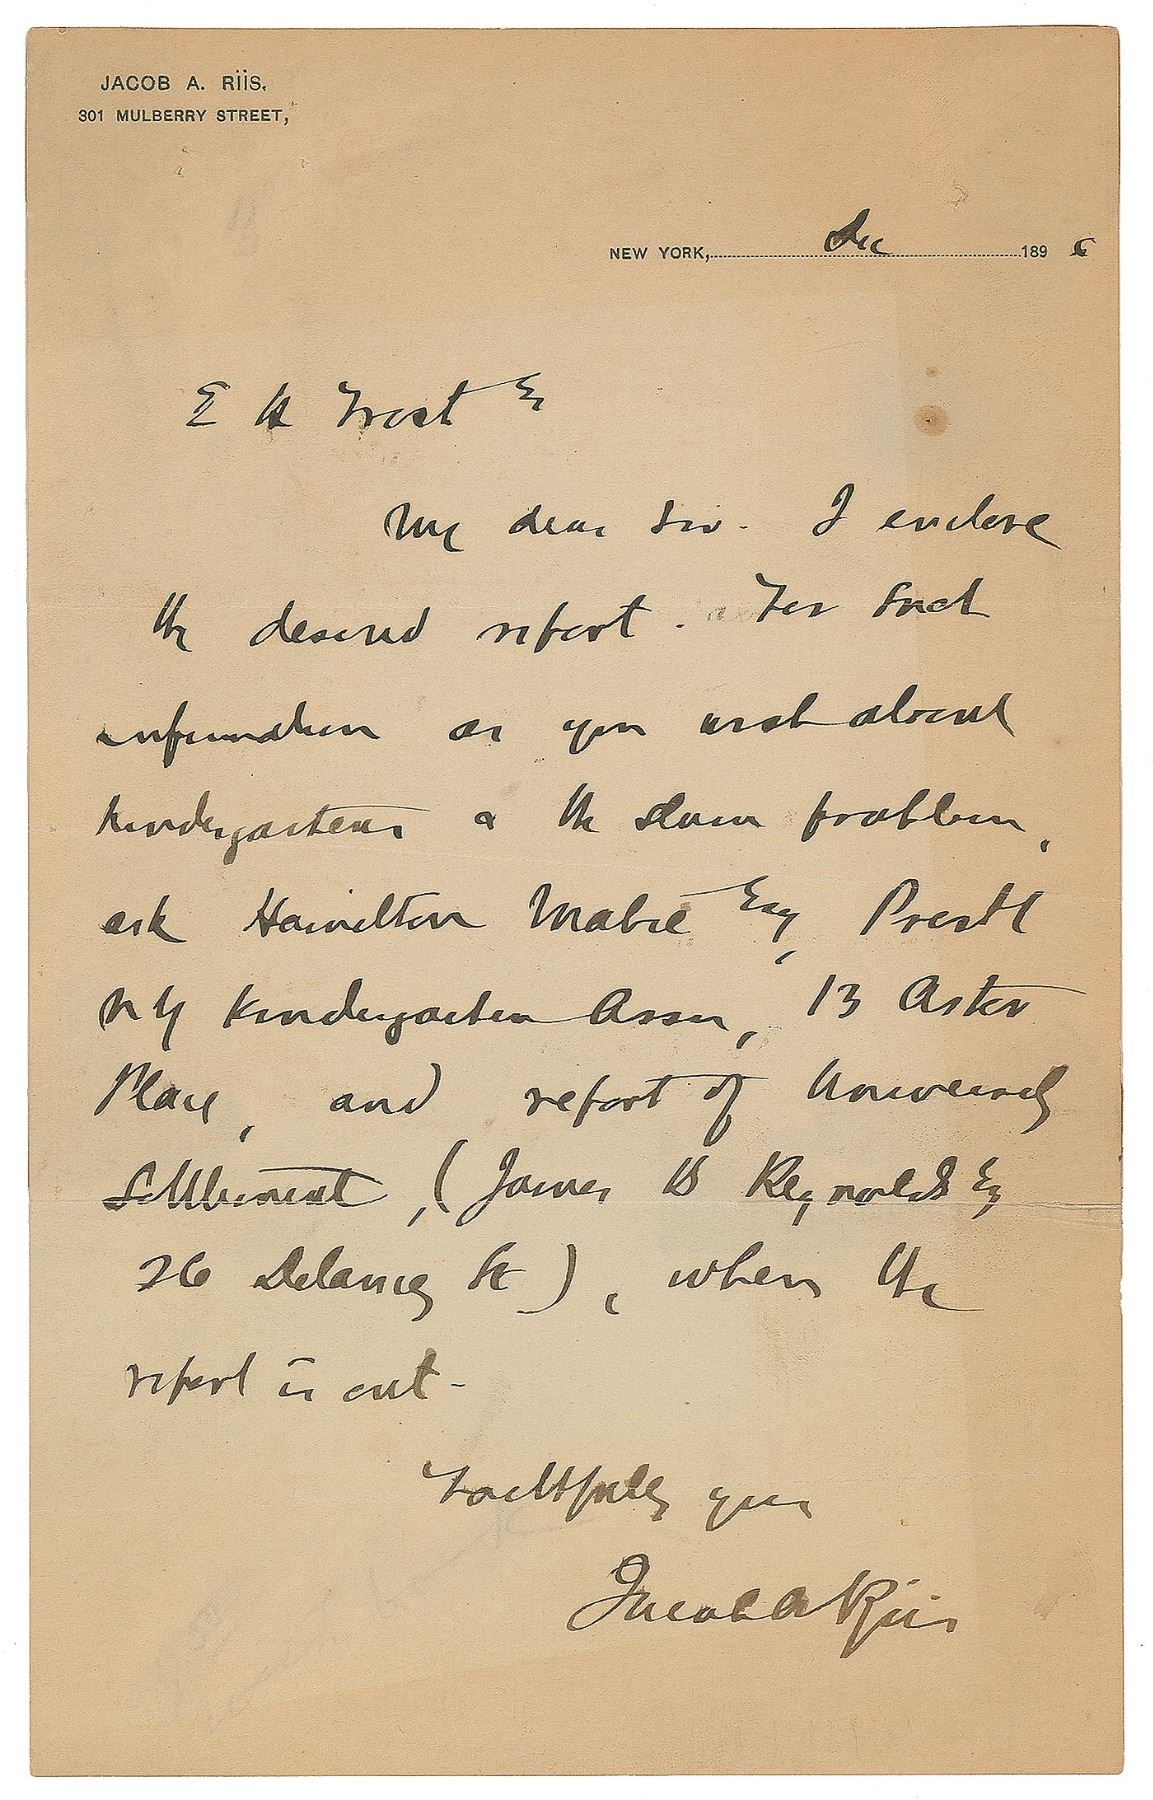 JACOB A. RIIS.
301 MULBERRY STREET,
NEW YORK, Dec 189 6
E H Frost Esq
My dear Sir. I enclose
the desired report. For such
information as you wish about
Kindergartens & the slum problem,
ask Hamilton Mabie Esq, Presdt
NY Kindergarten Assn, 13 Astor
Place, and report of University
Settlement, (James B Reynolds Esq
26 Delancy St), when the
report is out-
Faithfully yours
Jacob A Riis